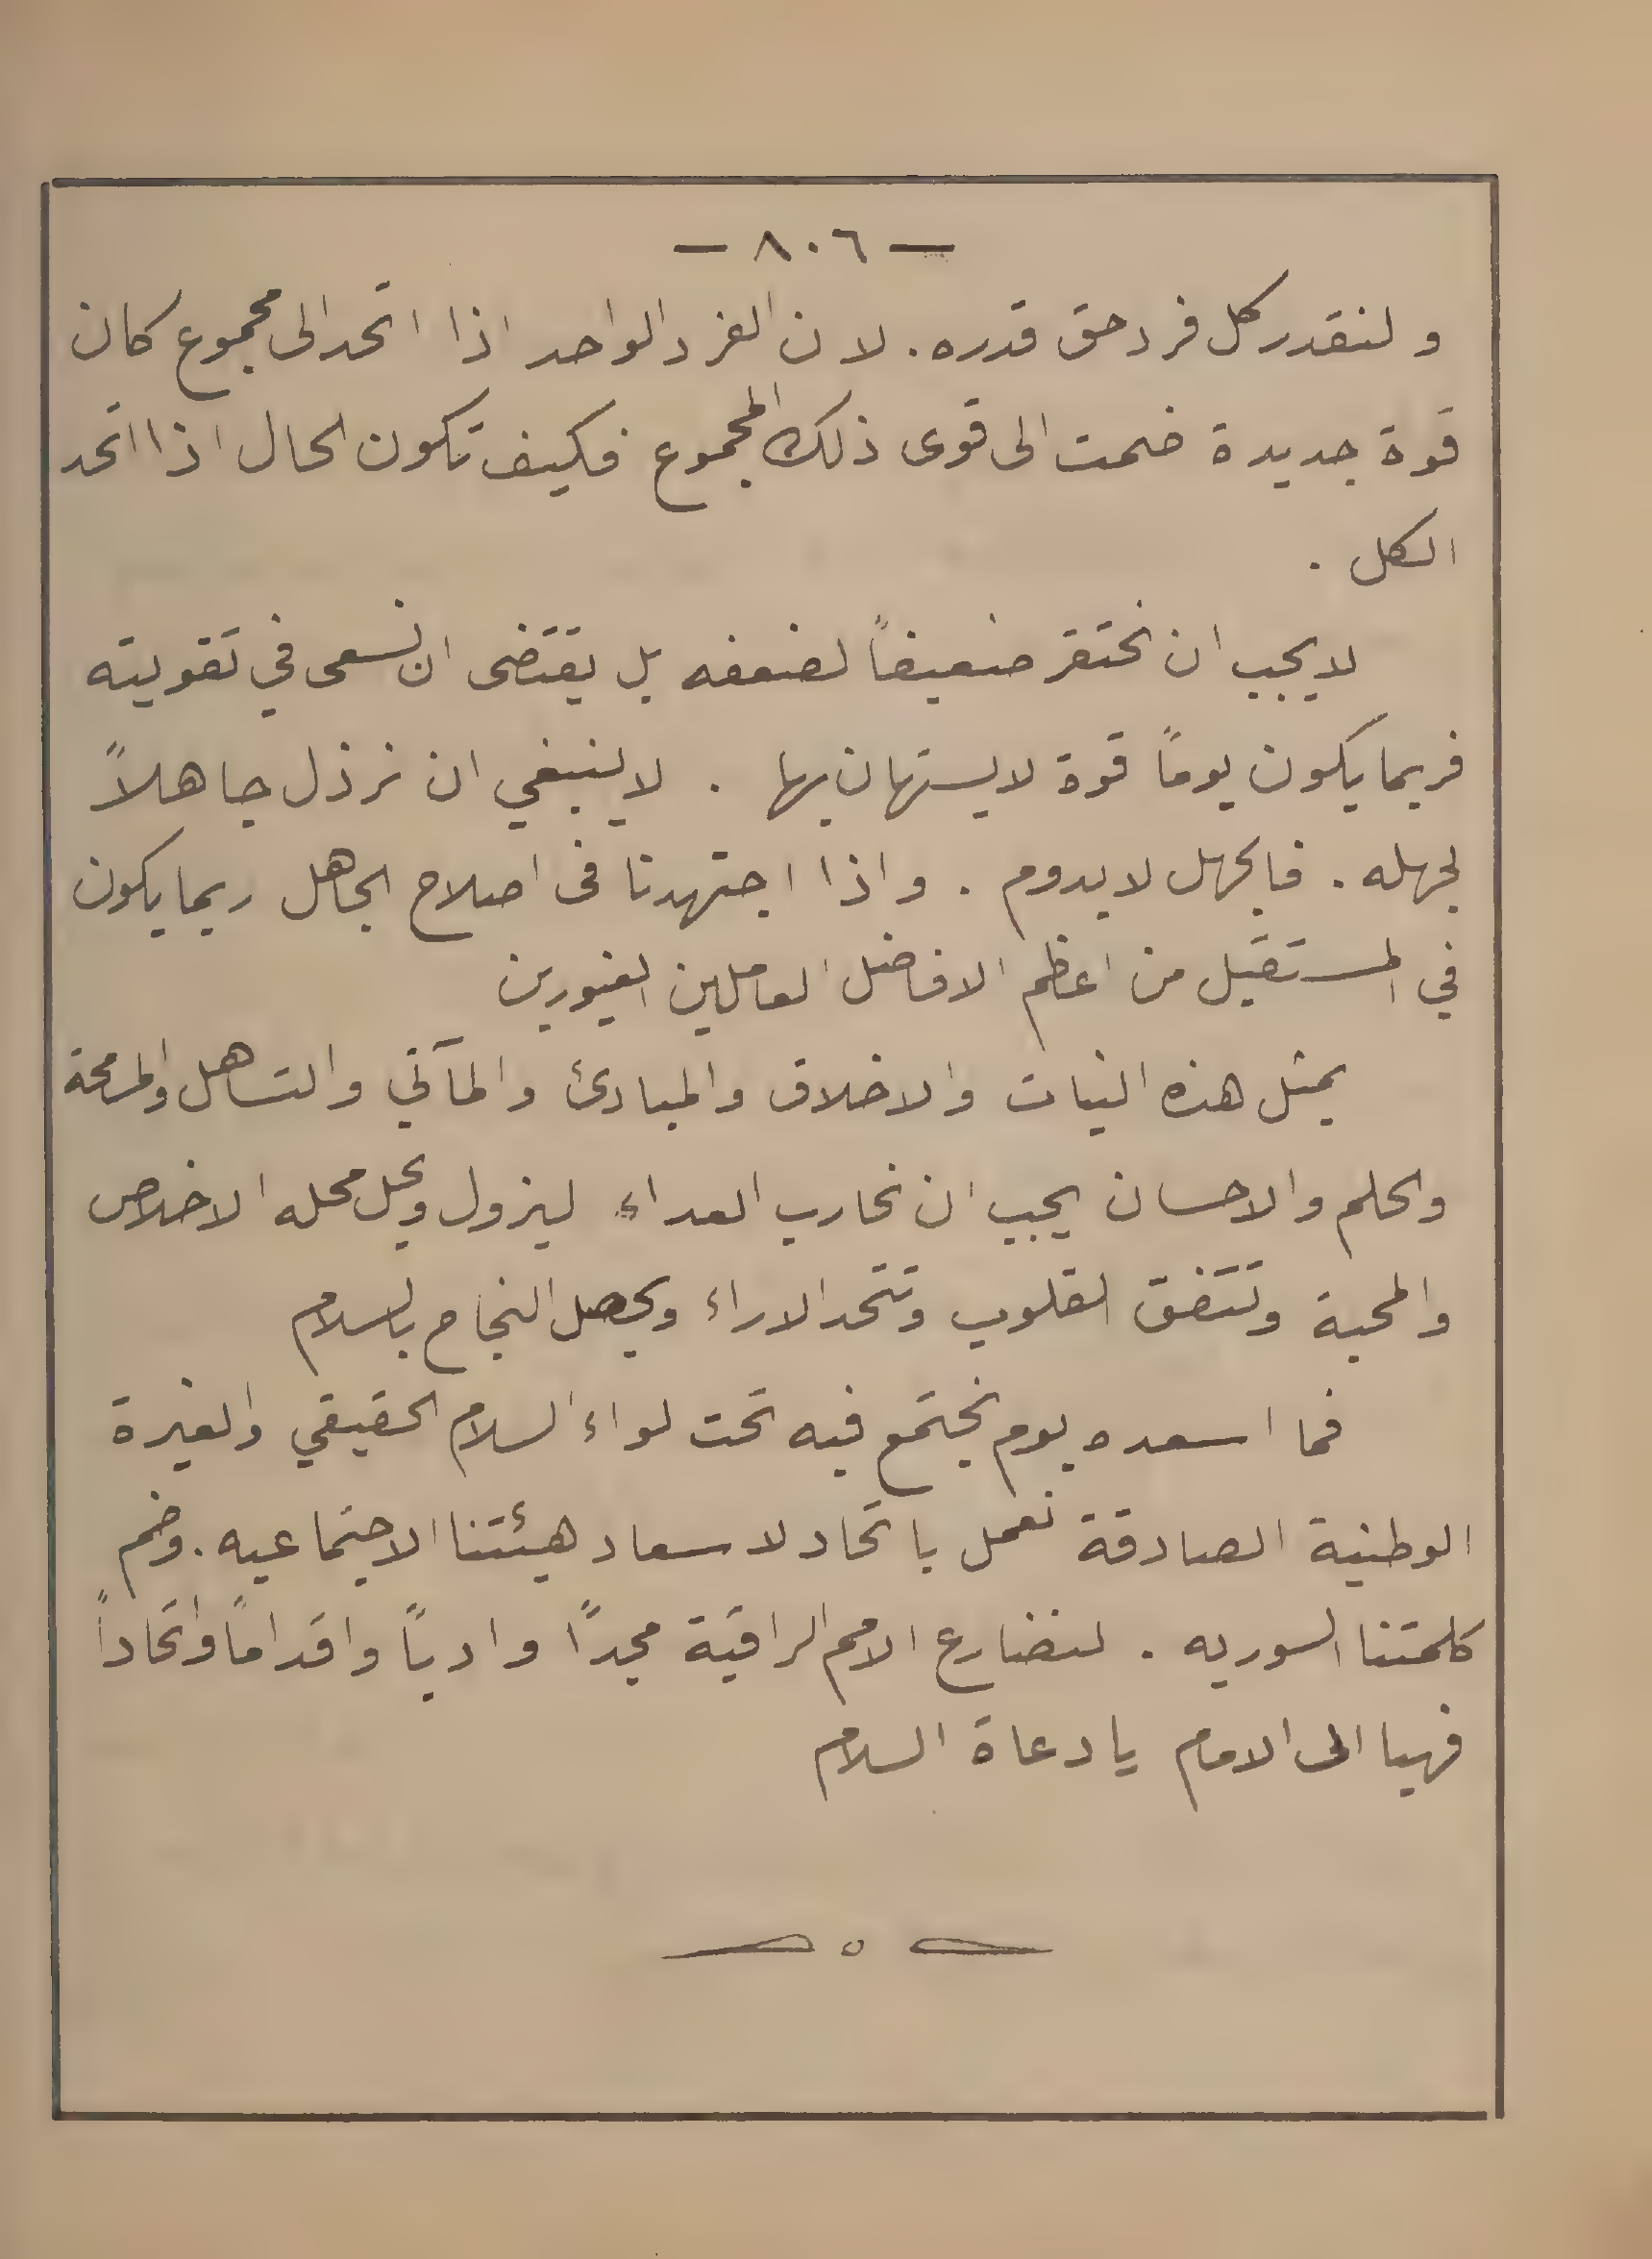 — ٨٠٦ —
ولنقدر كل فرد حق قدره . لان الفرد الواحد اذا اتحد الى مجموع كان
قوة جديدة ضمت الى قوى ذلك المجموع فكيف تكون الحال اذا اتحد
الكل .
لا يجب ان نحتقر ضعيفاً لضعفه بل يقتضى ان نسعى في تقويته
فربما يكون يوماً قوة لا يستهان بها . لا ينبغي ان نرذل جاهلاً
لجهله . فالجهل لا يدوم . واذا اجتهدنا فى اصلاح الجاهل ربما يكون
في المستقبل من اعظم الافاضل العاملين الغيورين
بمثل هذه النيات والاخلاق والمبادئ والمآتي والتساهل والمرحمة
والحلم والاحسان يجب ان نحارب العداء ليزول ويحل محله الاخلاص
والمحبة وتتفق القلوب وتتحد الاراء ويحصل النجاح بالسلام
فما اسعده يوم نجتمع فيه تحت لواء السلام الحقيقي والغيرة
الوطنية الصادقة نعمل باتحاد لاسعاد هيئتنا الاجتماعيه . وضم
كلمتنا السوريه . لنضارع الامم الراقية مجداً وادباً واقداماً واتحاداً
فهيا الى الامام يا دعاة السلام